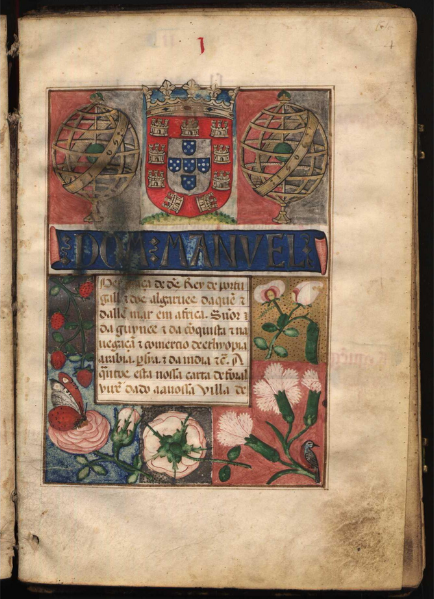 I
DOM : MANVEL :
per graça de dẽ Rey de portu
gall & dos algarues daquẽ &
dalle mar em africa. Sñor
da guynee & da cõquista & na
uegaçã & comercio de ethyopia
arabia, & da india &c. A
esta nossa carta de foral
virẽ dado aa nossa Villa de